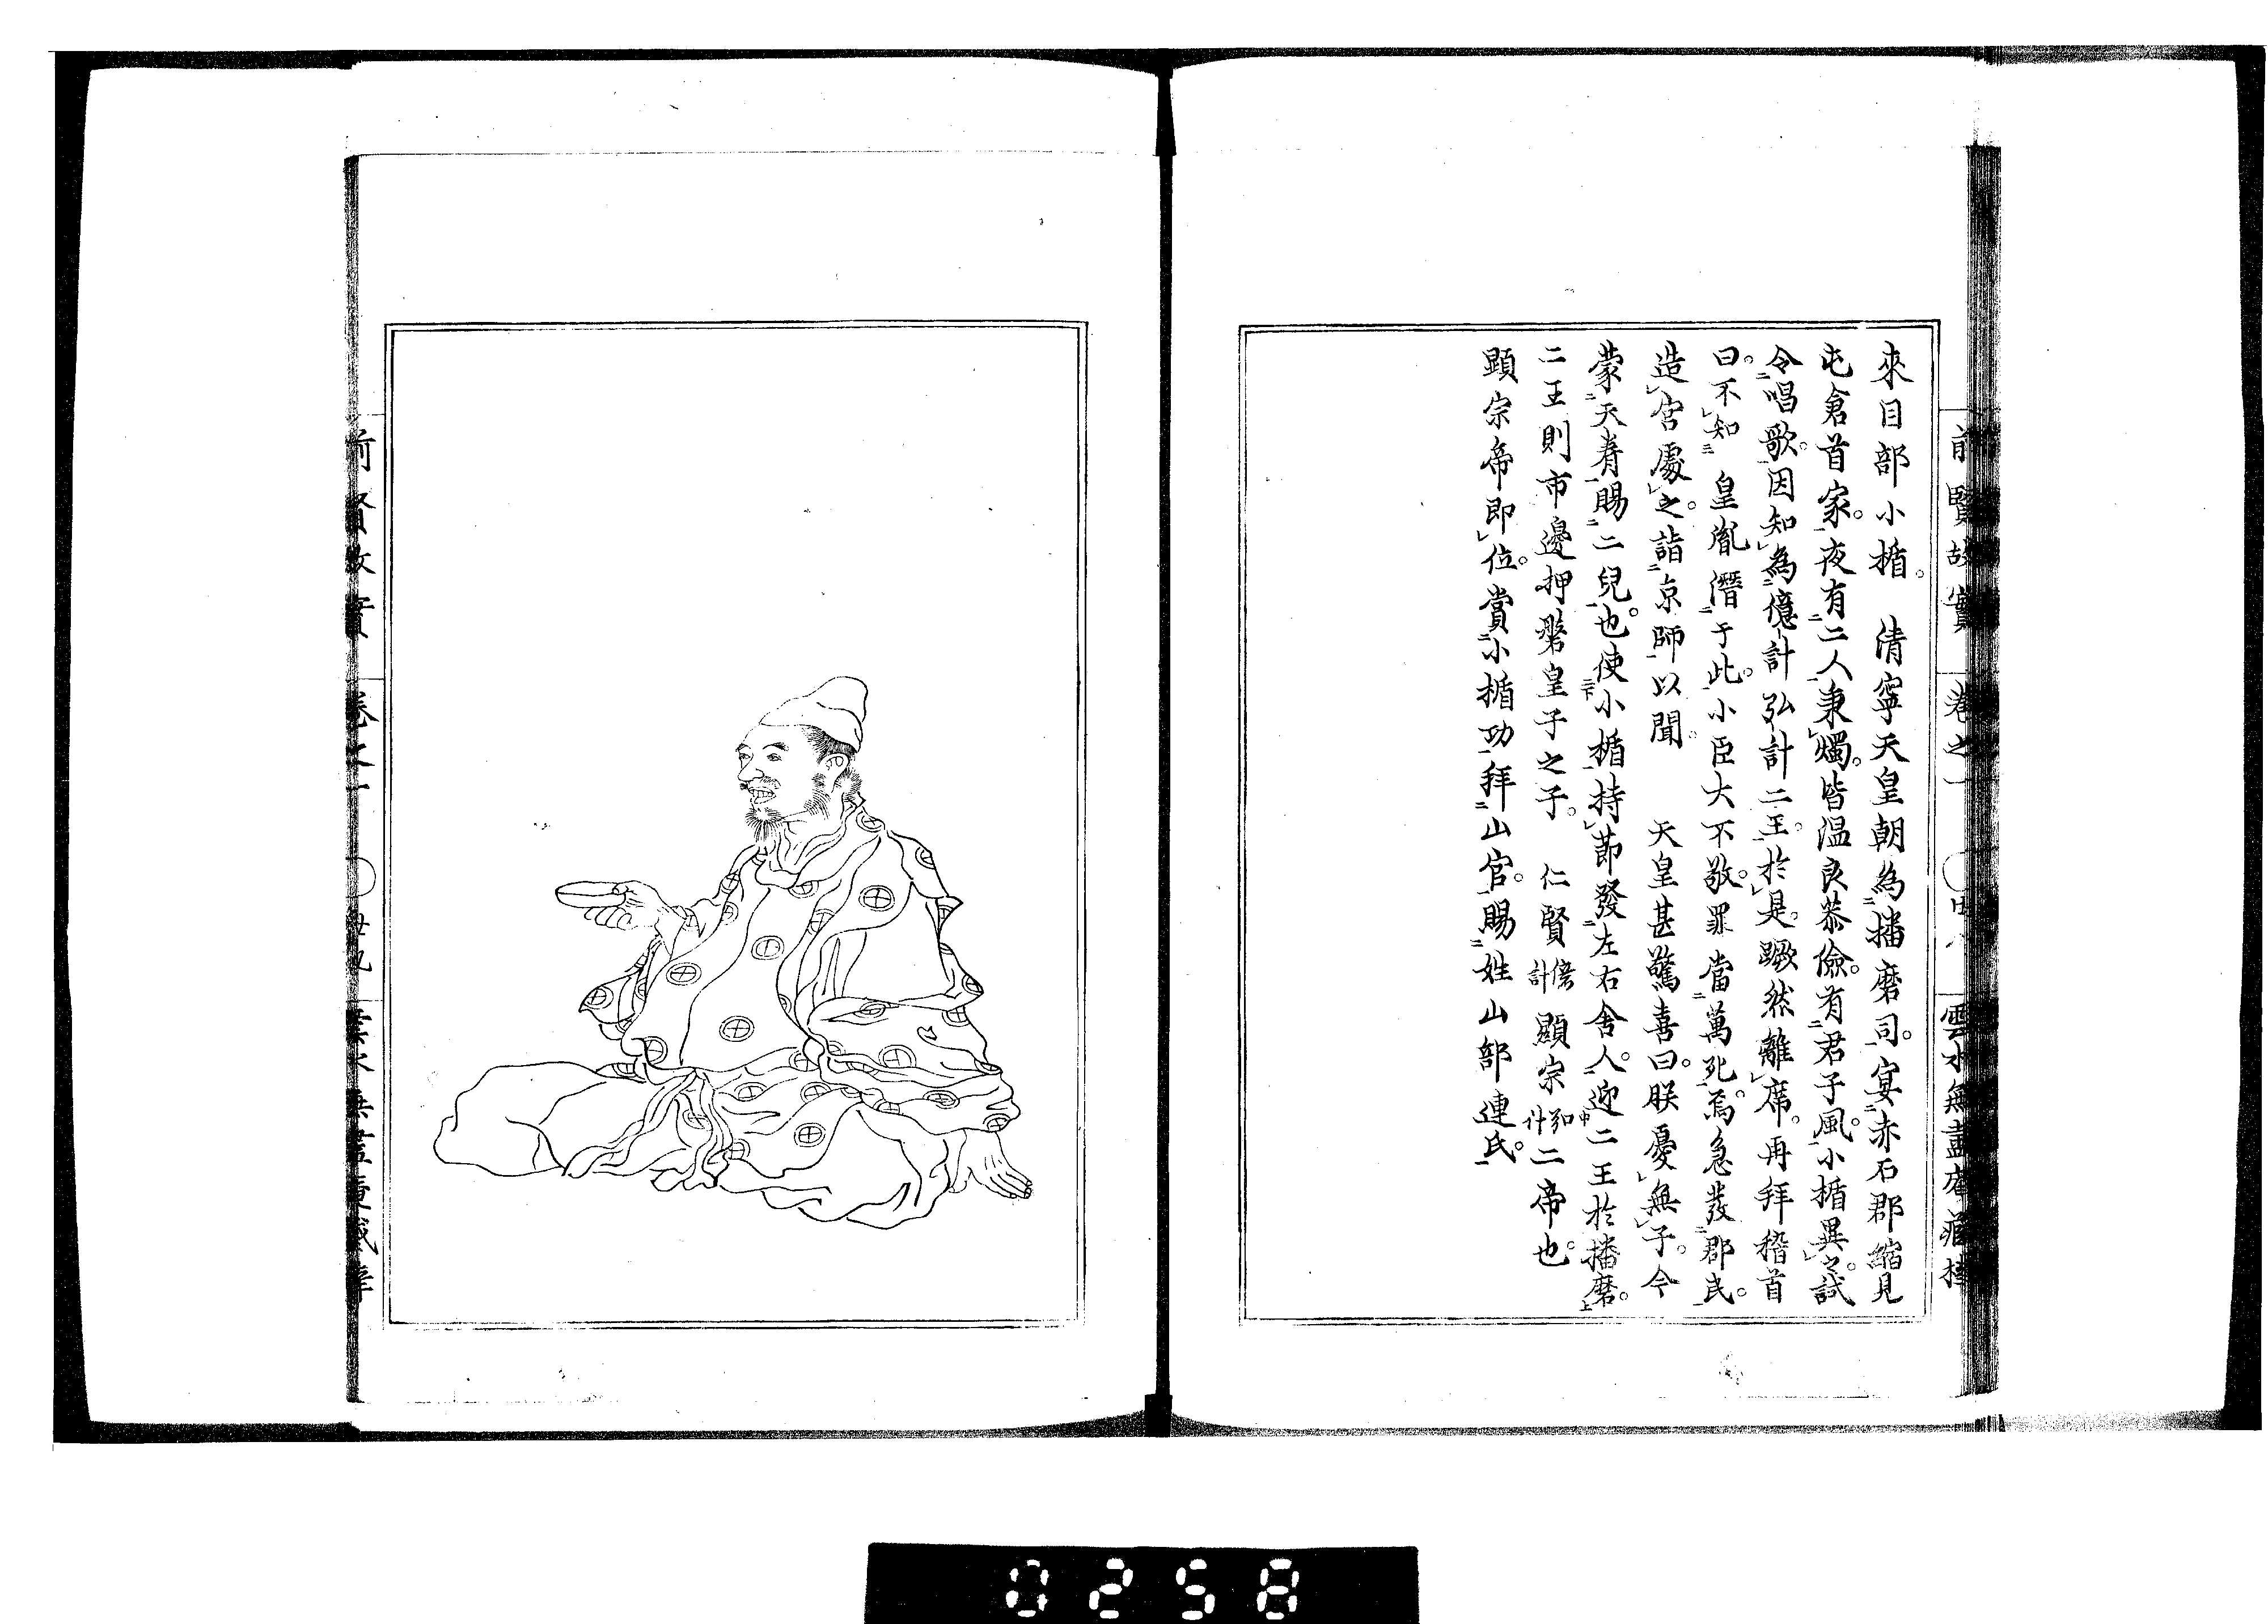 前賢故實 卷之一 雲水無盡庵藏
來目部小楯。 清寧天皇朝為播磨司。宴赤石郡縮見
屯倉首家。夜有二人秉燭。皆温良恭儉。有君子風。小楯異之。試
令唱歌。因知為億計弘計二王。於是。蹶然離席。再拜稽首
曰。不知 皇胤潛于此。小臣大不敬。罪當萬死焉。急發郡民。
造宮處之。詣京師以聞。 天皇甚驚喜曰。朕憂無子。今
蒙天眷賜二兒也。使小楯持節發左右舍人。迎二王於播磨。
二王則市邊押磐皇子之子。 仁賢億計顯宗弘計二帝也。
顕宗帝即位。賞小楯功拜山官。賜姓山部連氏。
前賢故實 卷之一
0258